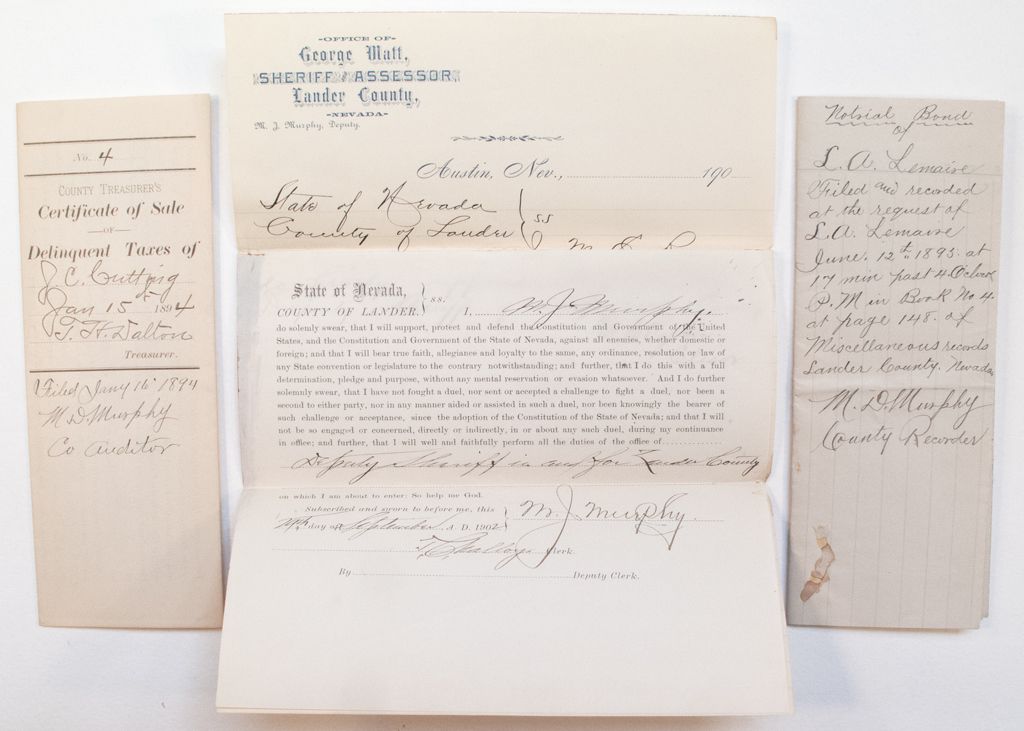 No. 4
COUNTY TREASURER'S
Certificate of Sale
—OF—
Delinquent Taxes of
J. C. Cutting
Jan 15th 1894
T. H. Dalton
Treasurer.
Filed Jany 16th 1894
M. D. Murphy
Co Auditor
-OFFICE OF-
George Watt,
SHERIFF AND ASSESSOR,
Lander County,
-NEVADA-
M. J. Murphy, Deputy.
Austin, Nev., 190
State of Nevada
County of Lander } SS
State of Nevada,
COUNTY OF LANDER. } ss. I, M. J. Murphy,
do solemnly swear, that I will support, protect and defend the Constitution and Government of the United
States, and the Constitution and Government of the State of Nevada, against all enemies, whether domestic or
foreign; and that I will bear true faith, allegiance and loyalty to the same, any ordinance, resolution or law of
any State convention or legislature to the contrary notwithstanding; and further, that I do this with a full
determination, pledge and purpose, without any mental reservation or evasion whatsoever. And I do further
solemnly swear, that I have not fought a duel, nor sent or accepted a challenge to fight a duel, nor been a
second to either party, nor in any manner aided or assisted in such a duel, nor been knowingly the bearer of
such challenge or acceptance, since the adoption of the Constitution of the State of Nevada; and that I will
not be so engaged or concerned, directly or indirectly, in or about any such duel, during my continuance
in office; and further, that I will well and faithfully perform all the duties of the office of
Deputy Sheriff in and for Lander County
on which I am about to enter: So help me God.
Subscribed and sworn to before me, this
day of September A. D. 1902 } M. J. Murphy.
Clerk.
By Deputy Clerk.
Notrial Bond
of
L. A. Lemaire
Filed and recorded
at the request of
L. A. Lemaire
June. 12th 1895. at
17 min past 4 Oclock
P. M in Book No 4.
at page 148. of
Miscellaneous records
Lander County. Nevada
M. D. Murphy
County Recorder